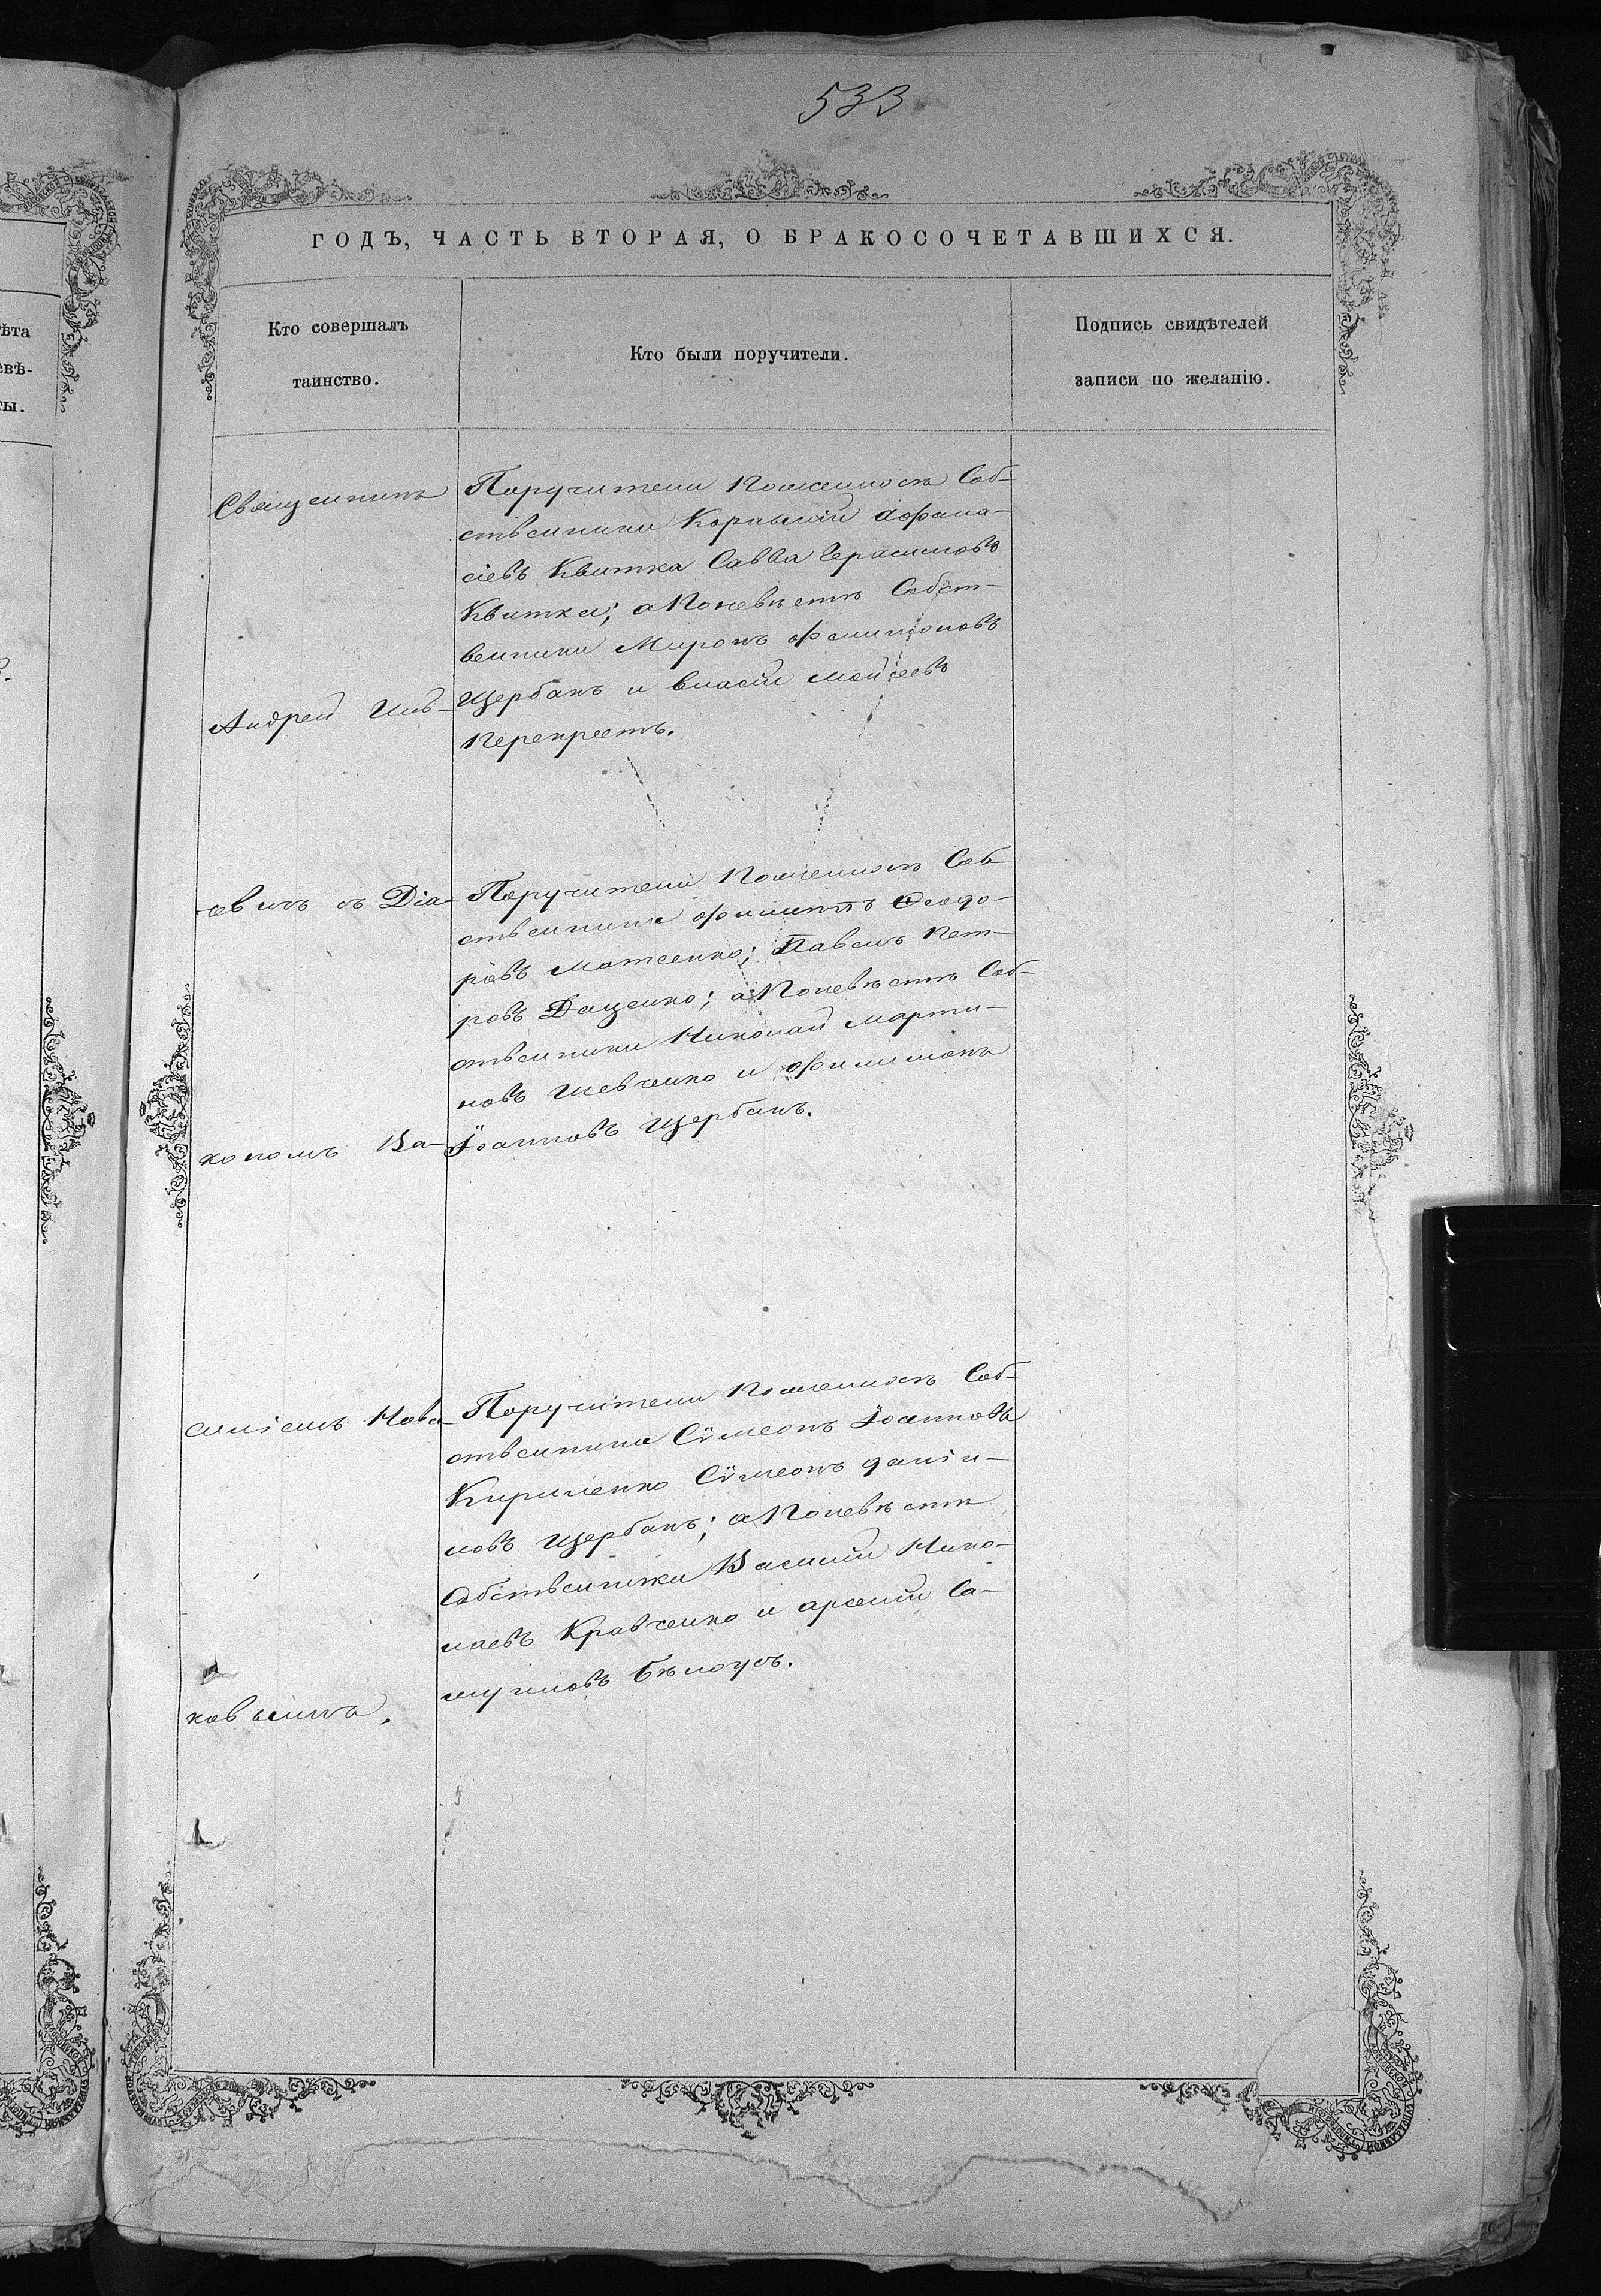 533
ГОДЪ, ЧАСТЬ ВТОРАЯ, О БРАКОСОЧЕТАВШИХСЯ.
Кто совершалъ
таинство.
Кто были поручители.
Подпись свидѣтелей
записи по желанію.
Священникъ
Андрей Иль-
евичъ съ Діа-
кономъ Ва-
силіемъ Нова-
Поручители по женихѣ Соб-
ственники Корнилій Афана-
сіевъ Квитка Савва Герасимовъ
Квитка; а по невѣстѣ Собст-
венники Миронъ Филимоновъ
Щербакъ и Власій Моѵсеевъ
Перекрестъ.
Поручители по женихѣ Соб-
ственники Филиппъ Ѳеодо-
ровъ Матеенко; Павелъ Пет-
ровъ Даценко; а по невѣстѣ Соб-
ственники Николай Марти-
новъ Шевченко и Филимонъ
Іоанновъ Щербакъ.
Поручители по женихѣ Соб-
ственники Сѵмеонъ Іоанновъ
Кириленко Сѵмеонъ Даніи-
ловъ Щербакъ; а по невѣстѣ
Собственники Василій Нико-
лаевъ Кравченко и Арсеній Са-
муиловъ Бѣлоусъ.
ѣта
евѣ-
ты.